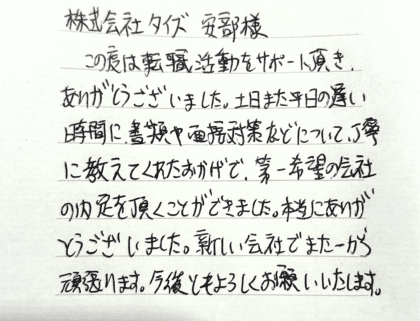 株式会社タイズ 安部様
この度は転職活動をサポート頂き、
ありがとうございました。土日また平日の遅い
時間に、書類や面接対策などについて、丁寧
に教えてくれたおかげで、第一希望の会社
の内定を頂くことができました。本当にありが
とうございました。新しい会社でまた一から
頑張ります。今後ともよろしくお願いいたします。